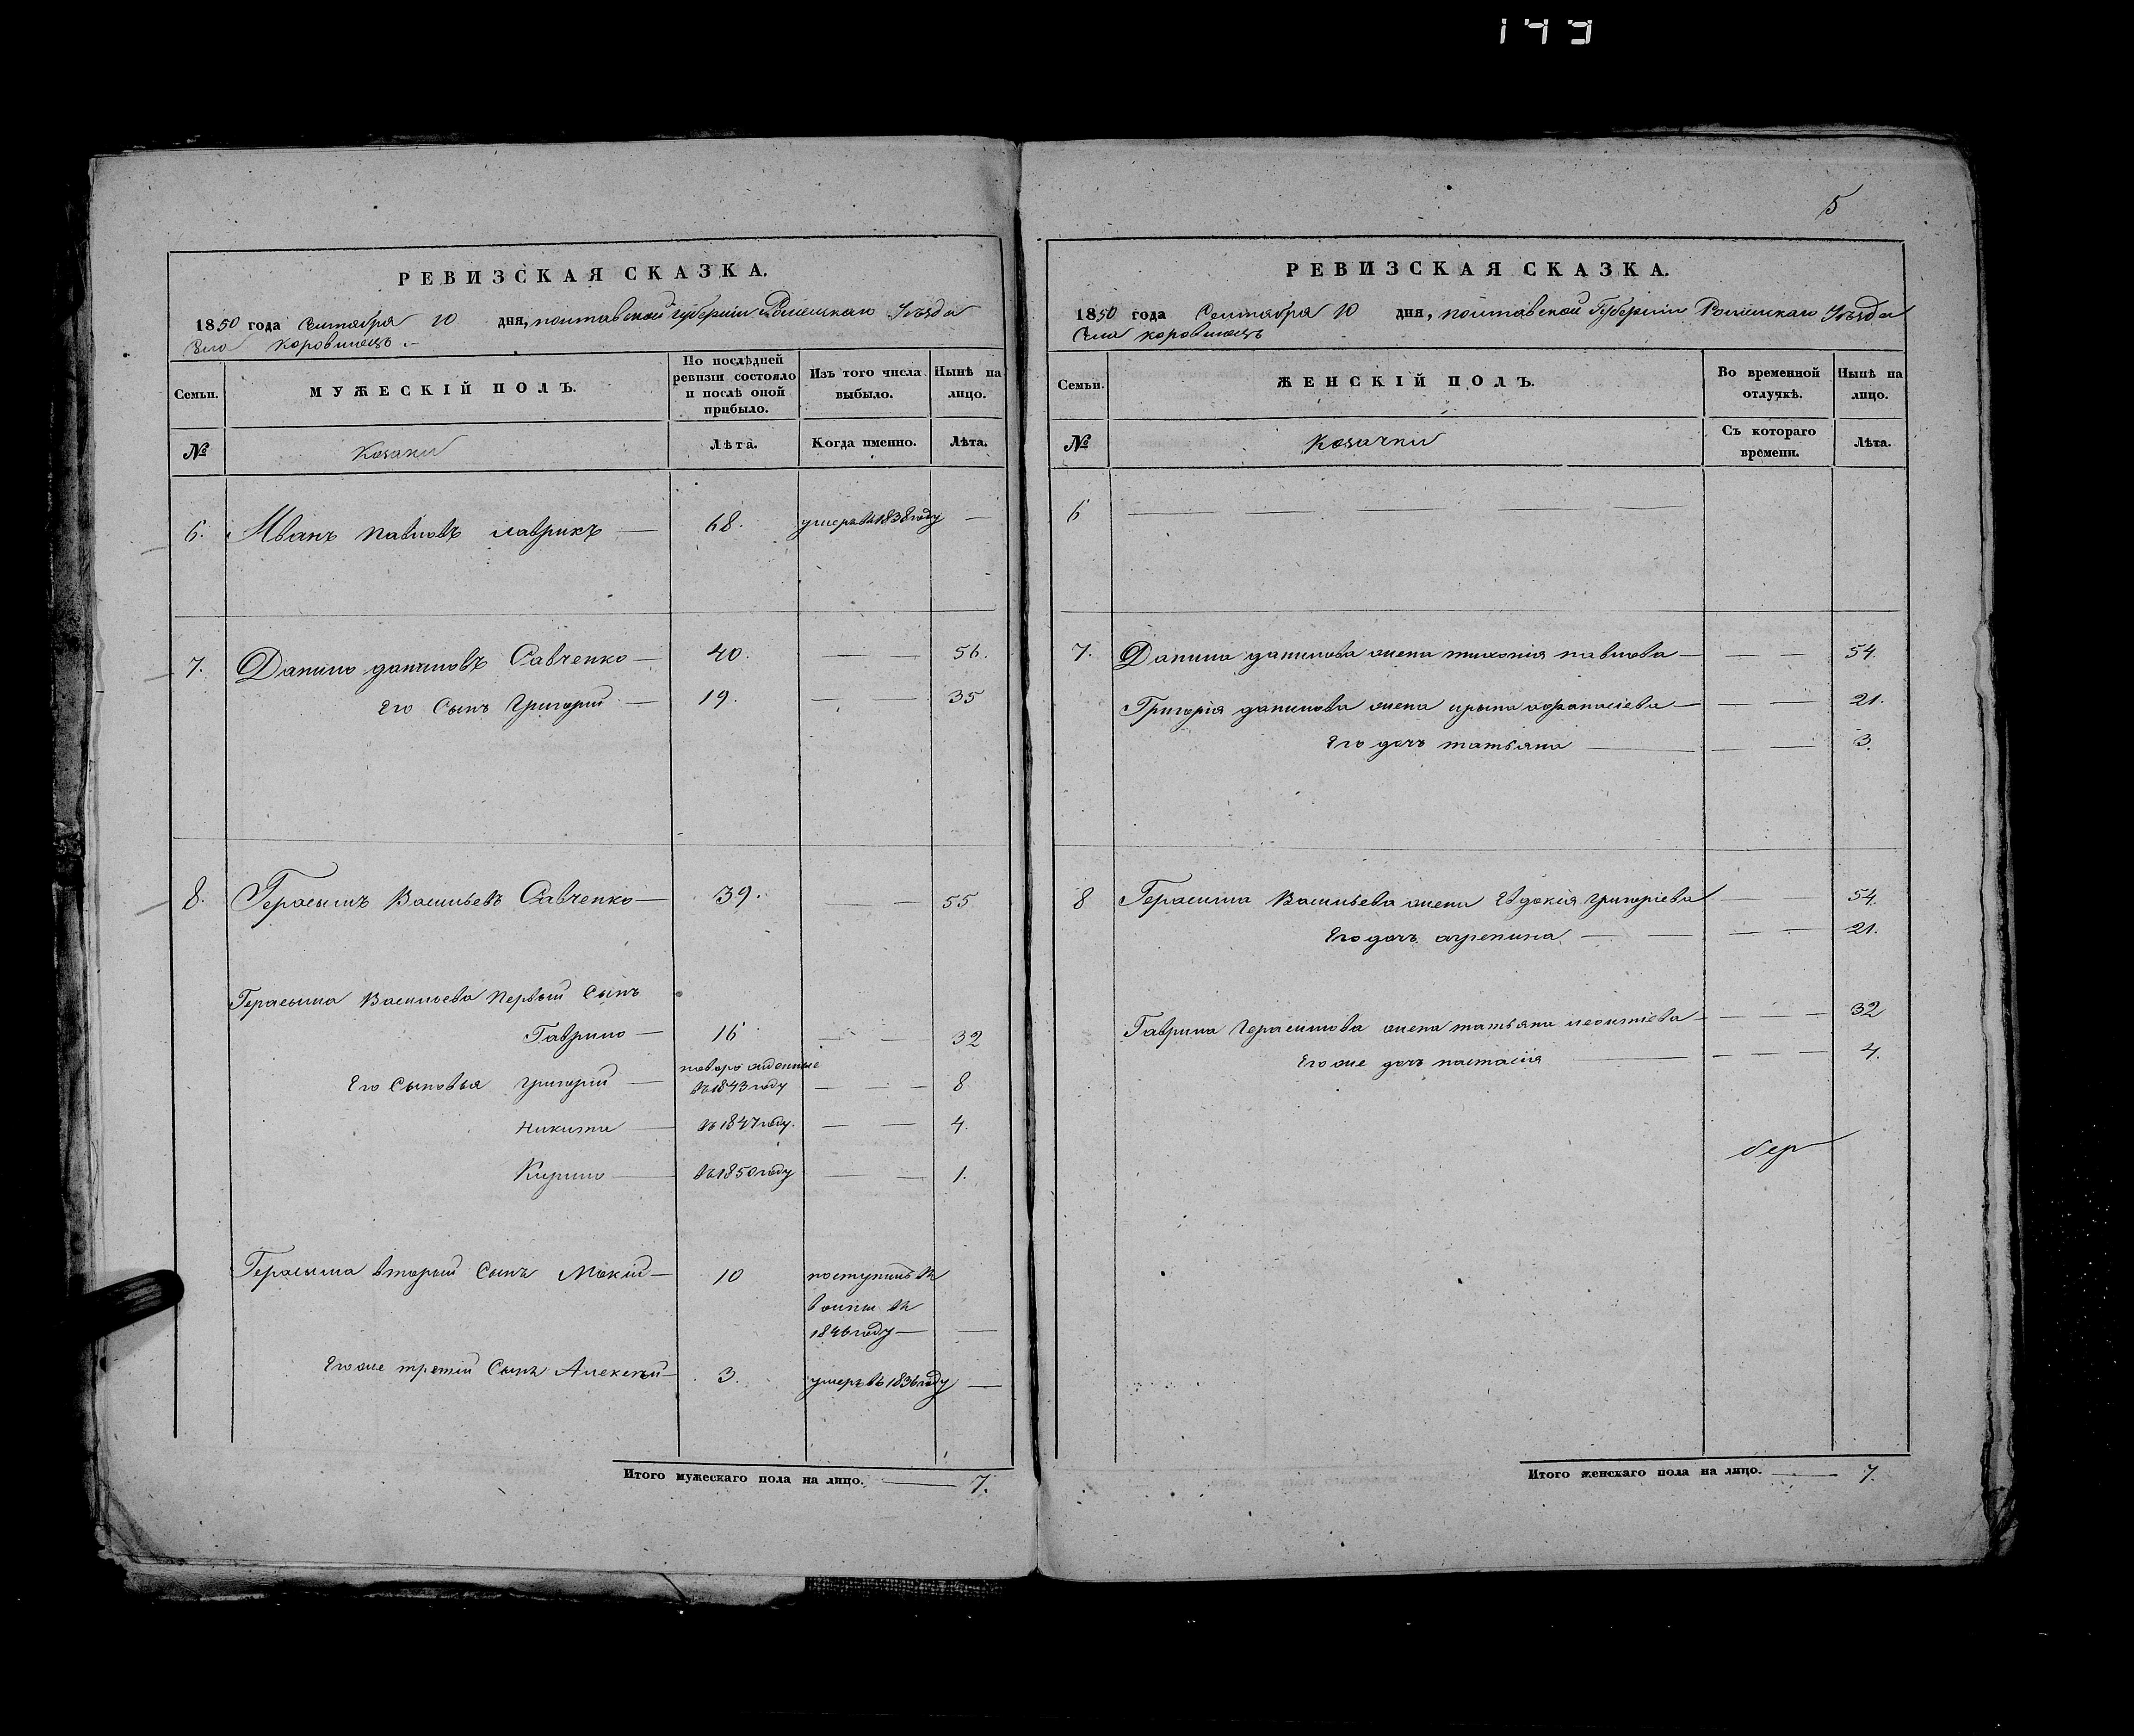 143
РЕВИЗСКАЯ СКАЗКА.
1850 года Сентября 10 дня, полтавской губернии Роменскаго Уезда
Села коровинецъ
Семьи.
МУЖЕСКІЙ ПОЛЪ.
По послѣдней ревизіи состояло и послѣ оной прибыло.
Изъ того числа выбыло.
Нынѣ на лицо.
№
Козаки
Лѣта.
Когда именно.
Лѣта.
6. Иванъ павловъ лаврикъ — 68. умеръ въ 1838 году —
7. Данило даниловъ Савченко — 40. — — 56.
Его Сынъ Григорій — 19. — — 35
8. Герасимъ Васильевъ Савченко — 39. — — 55
Герасыма Васильева первый Сынъ
Гаврило — 16 — — 32
новорожденные
Его Сыновья григорій — въ 1843 году — — 8
никита — въ 1847 году. — — 4.
Кирило — въ 1850 году — — 1.
Герасыма вторый Сынъ Мокій — 10 поступилъ въ
1846 году — —
Его же третій Сынъ Алексѣй — 3. умеръ въ 1836 году —
Итого мужескаго пола на лицо. — 7.
5
РЕВИЗСКАЯ СКАЗКА.
1850 года Сентября 10 дня, полтавской Губерніи Роменскаго Уѣзда
Села коровинецъ
Семьи.
ЖЕНСКІЙ ПОЛЪ.
Во временной отлучкѣ.
Нынѣ на лицо.
№
Козачки
Съ котораго времени.
Лѣта.
6 — — —
7. Данила данилова жена тихонія павлова — — — 54.
Григорія данилова жена ирына афанасіева — — — 21.
Его дочь татьяна — — — 3.
8 Герасима Васильева жена Евдокія григоріева — — 54.
Его дочь агрепина — — — — 21.
Гаврила Герасимова жена татьяна леонтіева — — — 32
Его же дочь настасія — — — 4.
Итого женскаго пола на лицо. — 7.